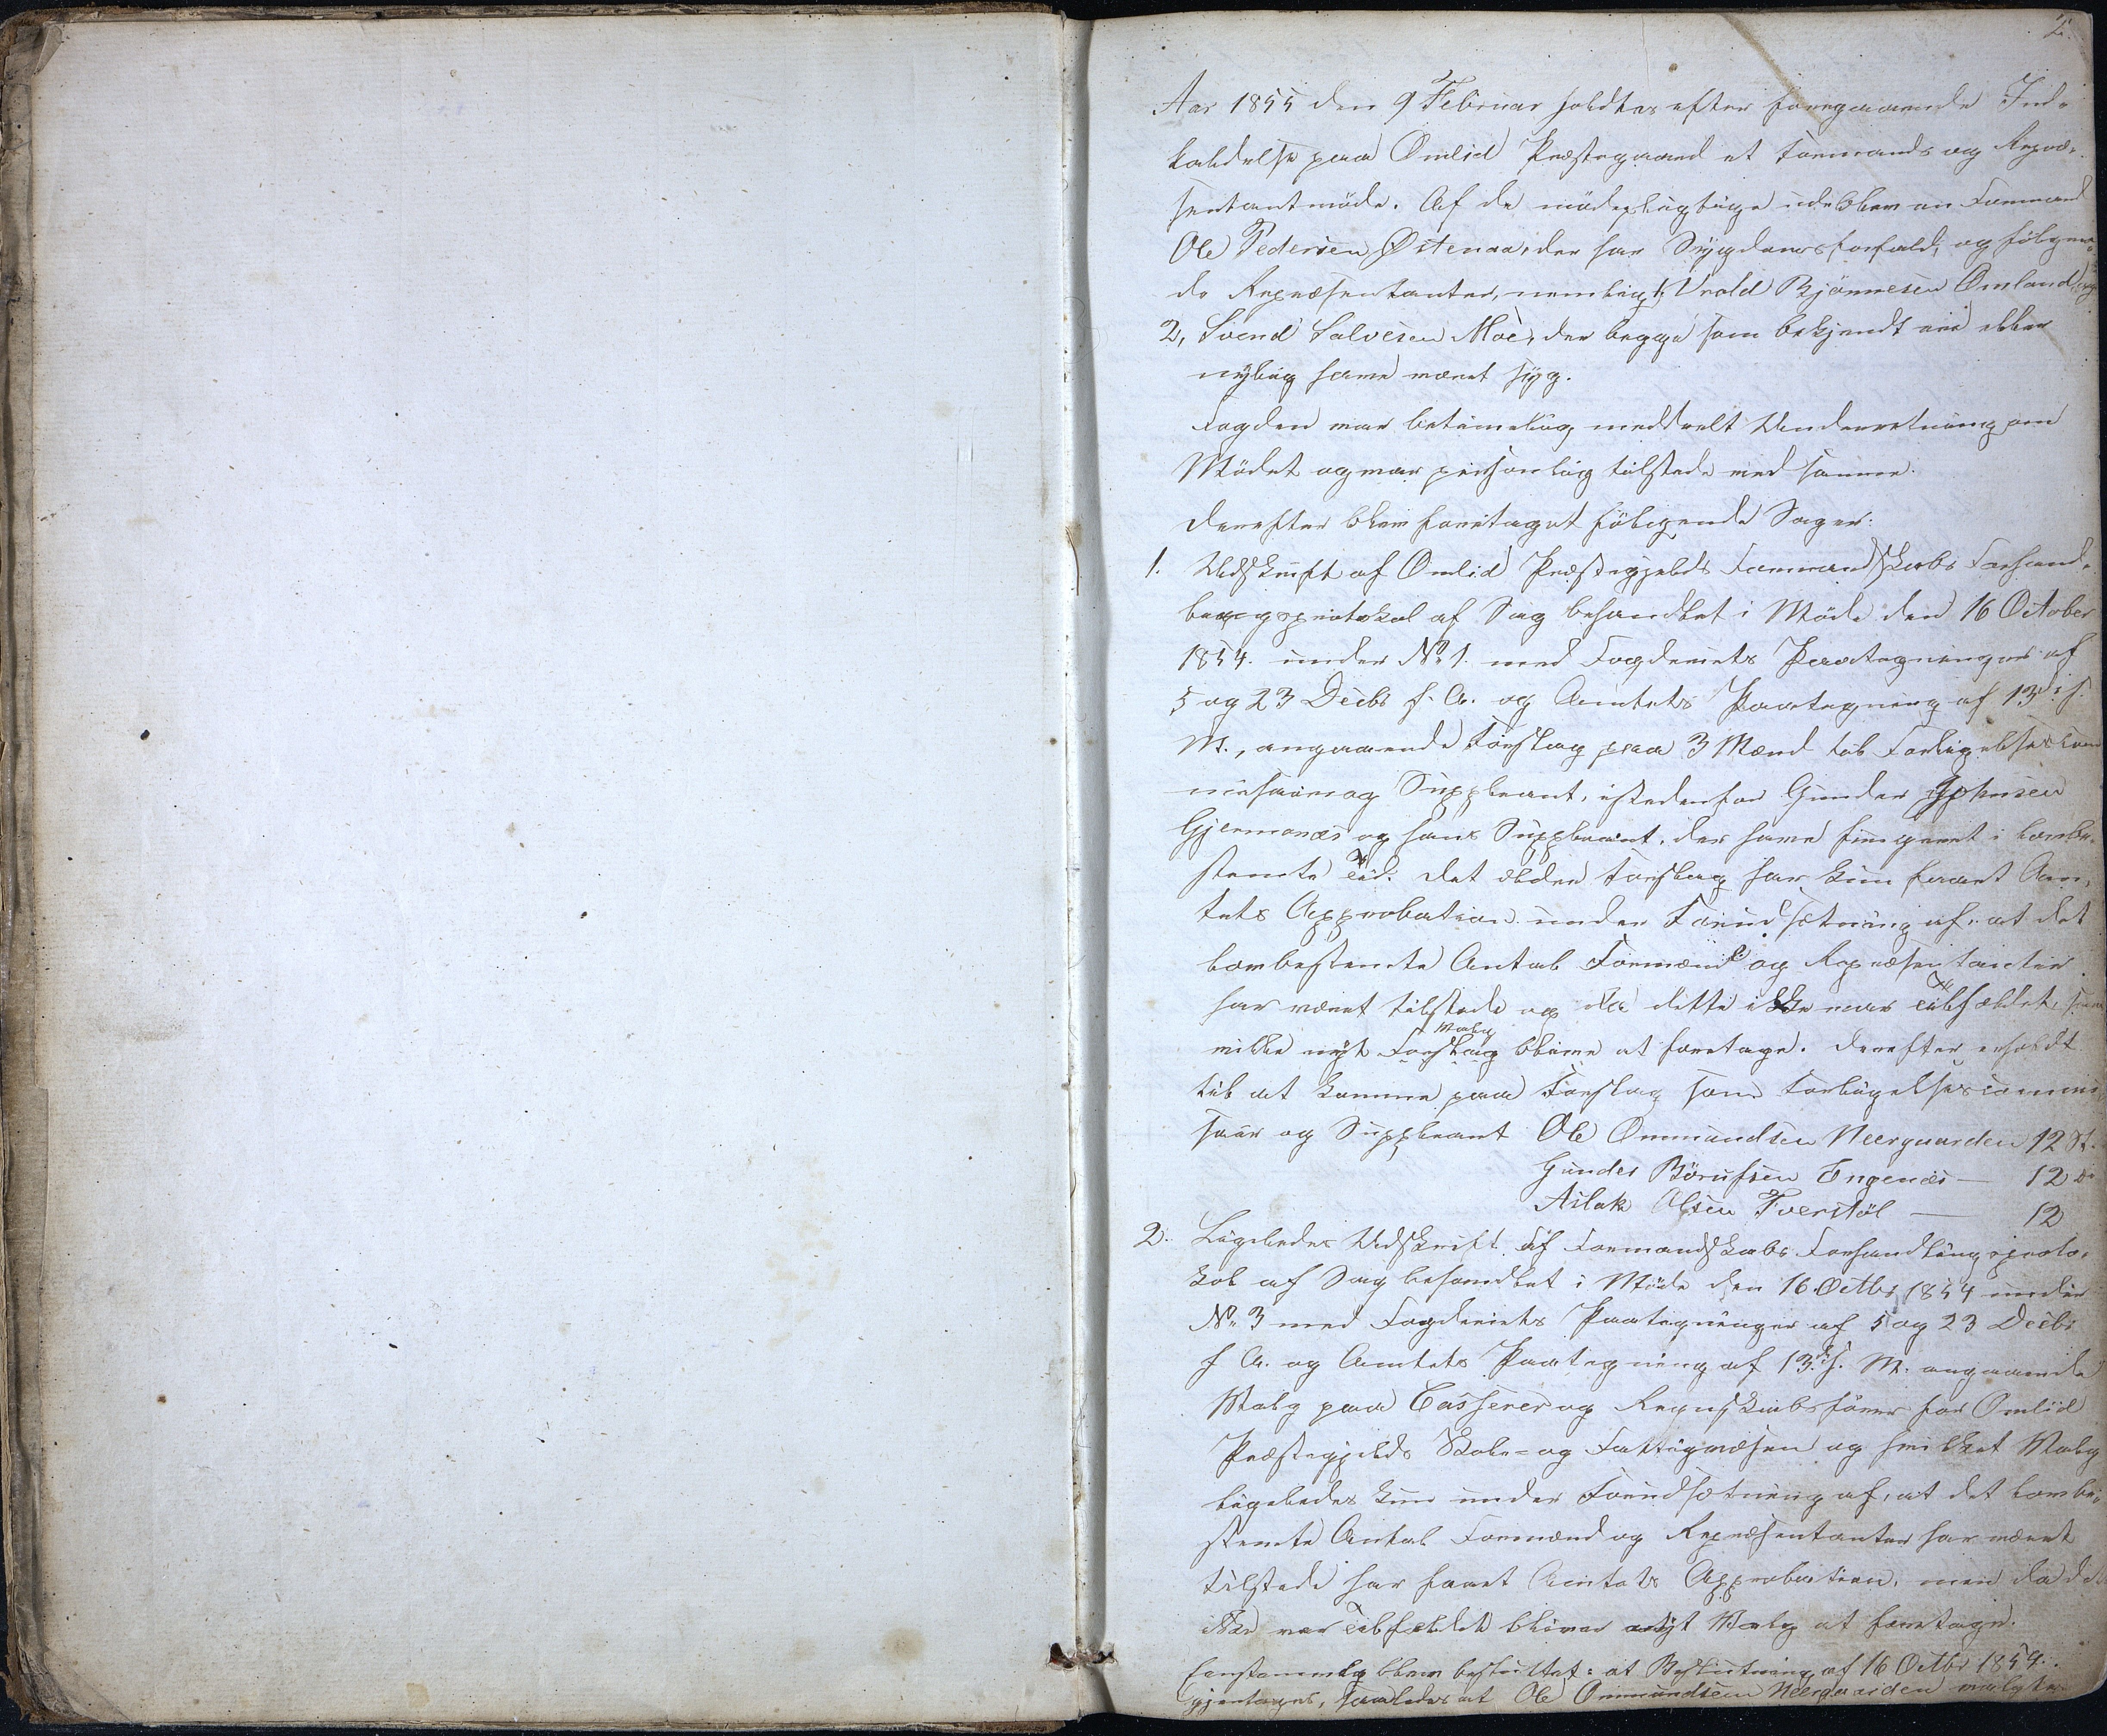 2.
Aar 1855 den 9 Februar holdtes efter foregaaende Ind-
kaldelse paa Omlid Præstegaard et Formands og Repræ-
sentantmøde. Af de mødepligtige udeblev en Formand
Ole Pedersen Østenaa, der har Sygdomsforfald, og følgen-
de Repræsentanter, nemlig 1, Vrold Bjørnnesen Omland, og
2, Svend Salvesen Moe, der begge som bekjendt er eller
nylig have været syg.
Fogden var betimelig meddeelt Underretning om
Mødet og var personlig tilstede ved samme.
Derefter blev foretaget følgende Sager:
1. Udskrift af Omlid Præstegjelds Formandskabs Forhand-
lingsprotokol af Sag behandlet i Møde den 16 October
1854. under No 1. med Fogderiets Paategninger af
5 og 23 Decbr f. A. og Amtets Paategning af 13de f.
M., angaaende Forslag paa 3 Mænd til Forligelsescom
missair og Suppleant, istedenfor Gunder Johnsen
Gjermonæs og hans Suppleant, der have fungeret i lovbe-
stemte Tid. Det ældre Forslag har kun faaet Am-
tets Approbation under Forudsætning af, at det
lovbestemte Antal Formænd og Repræsentanter
har været tilstede og da dette ikke var Tilfældet,
vilde nyt Forslag Valg blive at foretage. Derefter erholdt
til at komme paa Forslag som Forligelsescommis
sair og Suppleant Ole Ommundsen Neergaarden 12 St.
Gunder Børufsen Engenæs — 12 do
Aslak Olsen Tverstøl — 12
2. Ligeledes Udskrift af Formandskabs Forhandlingsproto-
kol af Sag behandlet i Møde den 16 Octbr 1854 under
No 3 med Fogderiets Paategninger af 5 og 23 Decbr
f A. og Amtets Paategning af 13de f. M. angaaende
Valg paa Casserer og Regnskabsfører for Omlid
Præstegjelds Skole- og Fattigvæsen og hvilket Valg
ligeledes kun under Forudsætning af, at det lovbe-
stemte Antal Formænd og Repræsentanter har været
tilstede har faaet Amtets Approbation, men da det
ikke var Tilfældet bliver nyt Valg at foretage.
Eenstemmig blev besluttet: at Beslutning af 16 Octbr 1854.
gjentages, saaledes at Ole Ommundsen Neergaarden valgtes